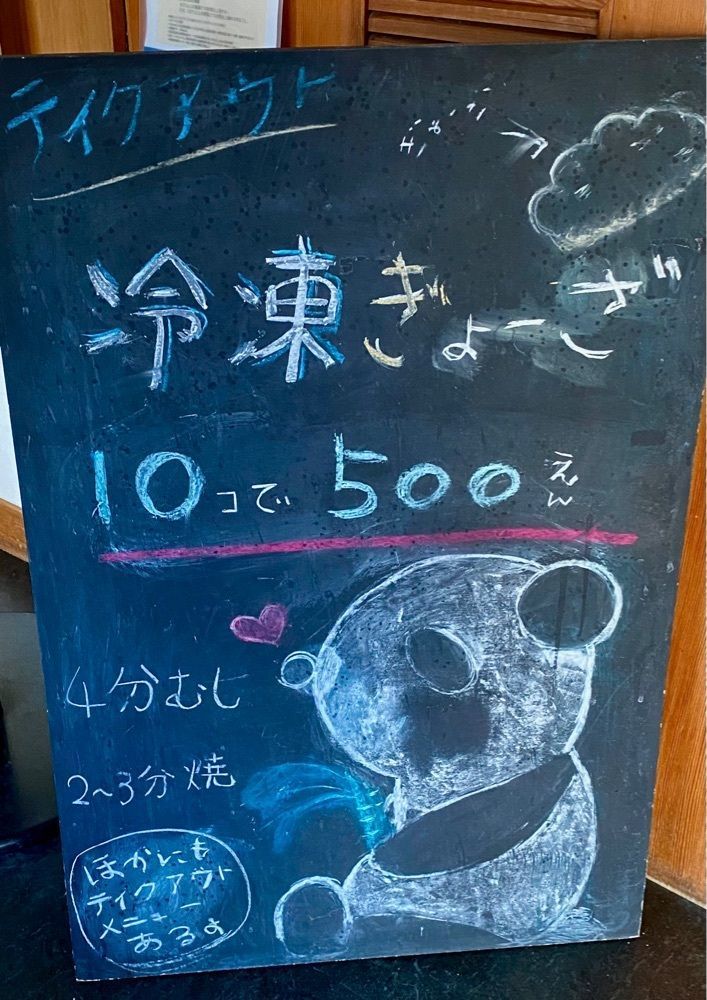 テイクアウト
冷凍ぎょーざ
10コで500えん
4分むし
2〜3分焼
ほかにも
テイクアウト
メニュー
あるよ